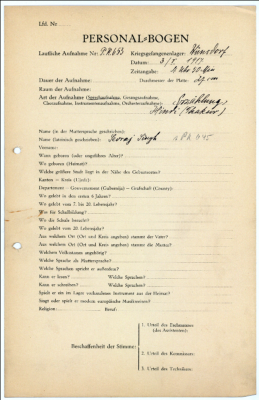 Lfd. Nr.
PERSONAL-BOGEN
Lautliche Aufnahme Nr: P.K. 633 Kriegsgefangenenlager: Wünsdorf
Datum: 3/I. 1917.
Zeitangabe:
Dauer der Aufnahme: Durchmesser der Platte: 27 cm
Raum der Aufnahme:
Art der Aufnahme (Sprechaufnahme, Gesangsaufnahme, Erzählung
Choraufnahme, Instrumentenaufnahme, Orchesteraufnahme): Hindi
Name (in der Muttersprache geschrieben):
Name (lateinisch geschrieben): Singh
Vorname:
Wann geboren (oder ungefähres Alter)?
Wo geboren (Heimat)?
Welche größere Stadt liegt in der Nähe des Geburtsortes?
Kanton – Kreis (Ujezd):
Departement – Gouvernement (Gubernija) – Grafschaft (County):
Wo gelebt in den ersten 6 Jahren?
Wo gelebt vom 7. bis 20. Lebensjahr?
Was für Schulbildung?
Wo die Schule besucht?
Wo gelebt vom 20. Lebensjahr?
Aus welchem Ort (Ort und Kreis angeben) stammt der Vater?
Aus welchem Ort (Ort und Kreis angeben) stammt die Mutter?
Welchem Volksstamm angehörig?
Welche Sprache als Muttersprache?
Welche Sprachen spricht er außerdem?
Kann er lesen? Welche Sprachen?
Kann er schreiben? Welche Sprachen?
Spielt er ein im Lager vorhandenes Instrument aus der Heimat?
Singt oder spielt er modern europäische Musikweisen?
Religion: Beruf:
1. Urteil des Fachmannes
(des Assistenten):
Beschaffenheit der Stimme:
2. Urteil des Kommissars:
3. Urteil des Technikers: